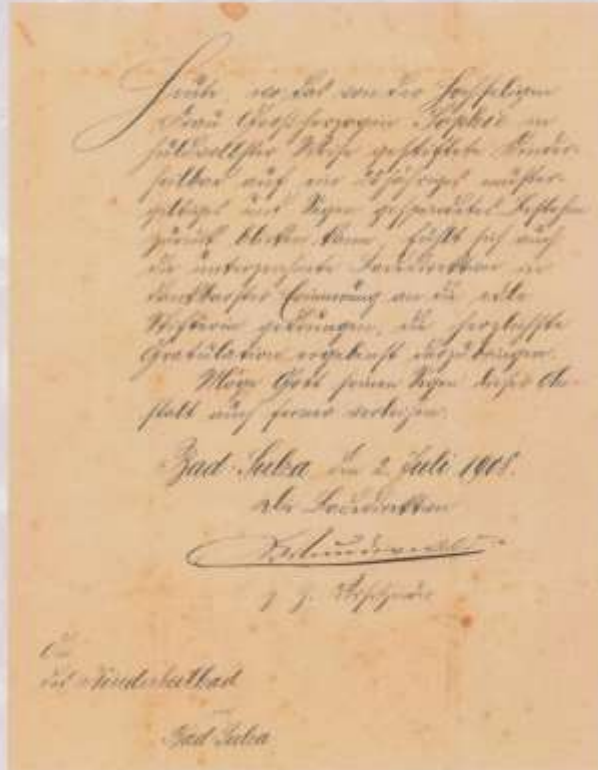 Heute, wo das von der Hochseligen
Frau Großherzogin Sophie in
huldvollster Weise gestiftete Kinder-
heilbad auf ein 25jähriges muster-
gültiges und Segen gespendetes Bestehen
zurück blicken kann, fühlt sich auch
die unterzeichnete Badedirektion in
dankbarster Erinnerung an die edle
Stifterin gedrungen, die herzlichste
Gratulation ergebenst darzubringen.
Möge Gott seinen Segen dieser An-
stalt auch ferner verleihen.
Bad Sulza den 2. Juli 1908.
Die Badedirektion
An
das Kinderheilbad
Bad Sulza